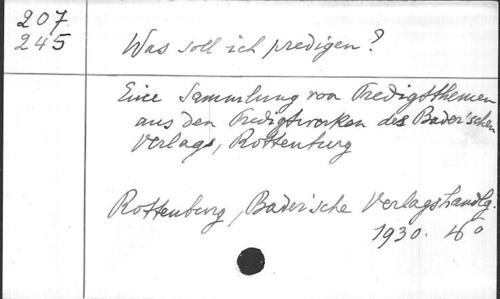 207
245
Was soll ich predigen?
Eine Sammlung von Predigtthemen
aus den Predigtwerken des Bader'schen
Verlags, Rottenburg
Rottenburg, Bader'sche Verlagshandlg.
1930. 4°